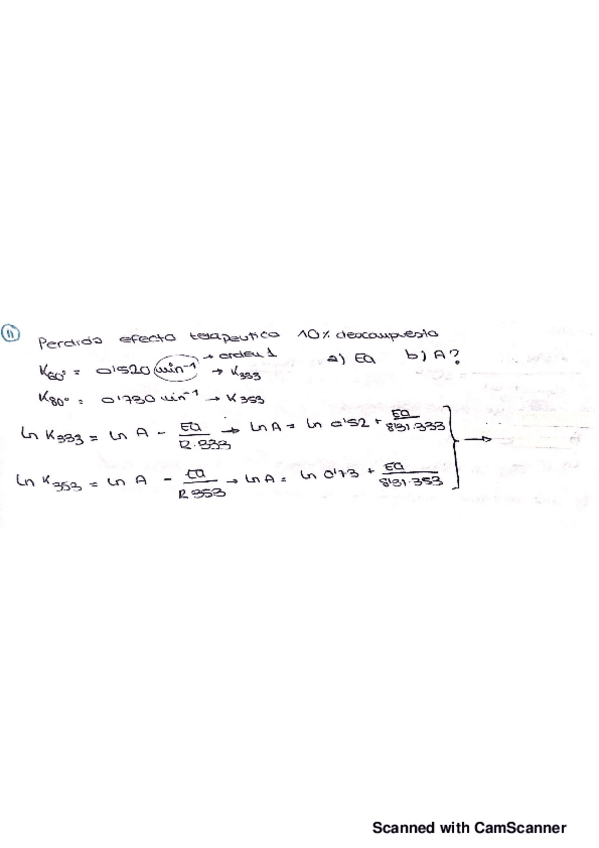 11 Perdida efecto terapeutico 10% descompuesto
K60° = 0'520 min⁻¹ → orden 1 → K333 a) Ea b) A?
K80° = 0'730 min⁻¹ → K353
ln K333 = ln A - Ea/R·333 → ln A = ln 0'52 + Ea/8'31·333
ln K353 = ln A - Ea/R·353 → ln A = ln 0'73 + Ea/8'31·353 →
Scanned with CamScanner